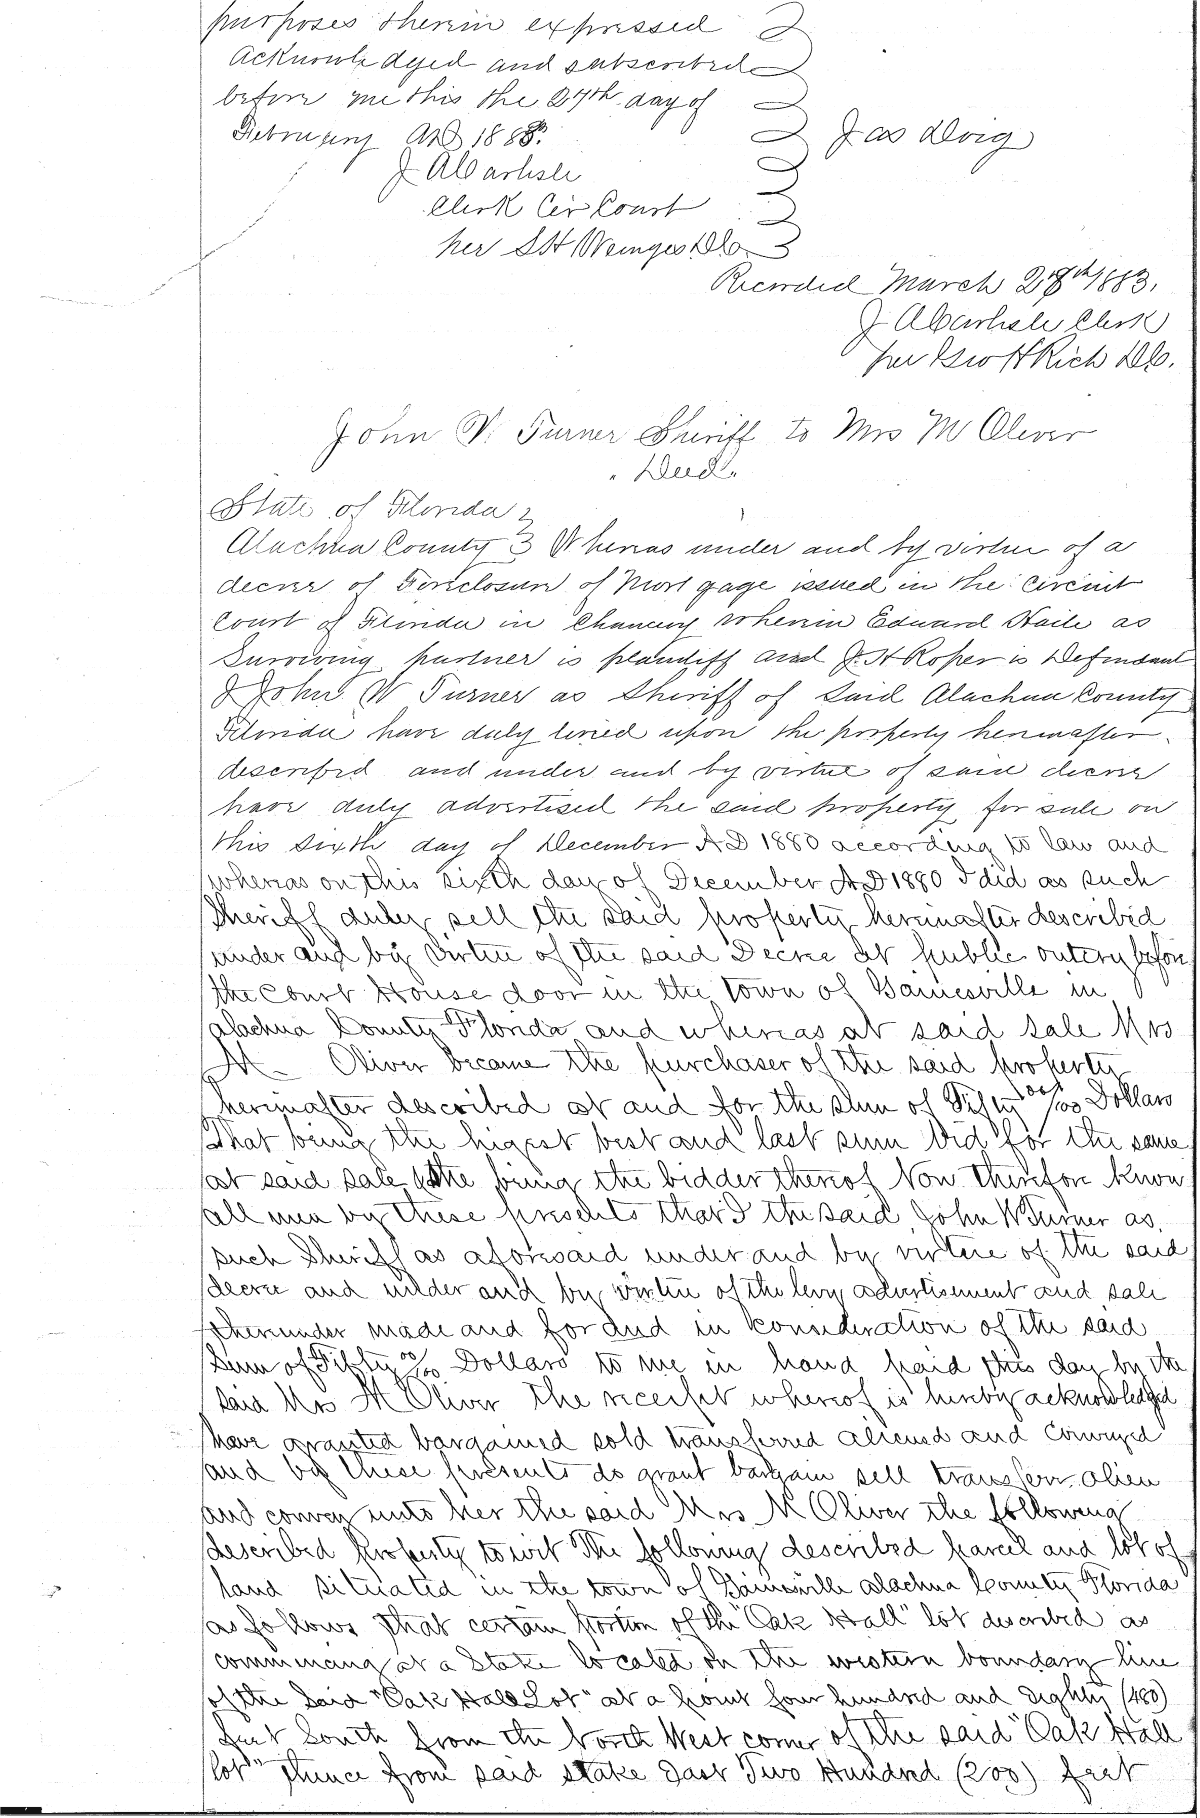 purposes therein expressed
Acknowledged and subscribed
before me this the 27th day of
February AD 1883.
Jas Doig
J A Carlisle
Clerk Cir Court
per S H Wienges D C.
Recorded March 28th 1883.
J A Carlisle Clerk
per Geo H Rich D C.
John W. Turner Sheriff to Mrs M Oliver
"Deed"
State of Florida
Alachua County Whereas under and by virtue of a
decree of Foreclosure of Mortgage issued in the Circuit
Court of Florida in Chancery wherein Edward Haile as
Surviving partner is plaintiff and J. H Roper is Defendant
I John W Turner as Sheriff of Said Alachua County
Florida have duly levied upon the property hereinafter
described and under and by virtue of said decree
have duly advertised the said property for sale on
this sixth day of December A D 1880 according to law and
whereas on this sixth day of December A D 1880 I did as such
Sheriff duly sell the said property hereinafter described
under and by virtue of the said Decree at public outcry before
the Court House door in the town of Gainesville in
Alachua County Florida and whereas at said sale Mrs
M. Oliver became the purchaser of the said property
hereinafter described at and for the sum of Fifty 00/100 Dollars
That being the higest best and last sum bid for the same
at said sale she being the bidder thereof Now therefore know
all men by these presents that I the said John W Turner as
such Sheriff as aforesaid under and by virtue of the said
decree and under and by virtue of the levy advertisement and sale
thereunder made and for and in consideration of the said
Sum of Fifty 00/100 Dollars to me in hand paid this day by the
said Mrs M Oliver the receipt whereof is hereby acknowledged
have granted bargained sold transferred aliened and conveyed
and by these presents do grant bargain sell transferr alien
and convey unto her the said Mrs M Oliver the following
described property to wit The following described parcel and lot of
land situated in the town of Gainesville Alachua County Florida
as follows that certain portion of the "Oak Hall" lot described as
commencing at a Stake located on the western boundary line
of the Said "Oak Hall Lot" at a point four hundred and Eighty (480)
feet South from the North West corner of the said "Oak Hall
lot" thence from said stake East Two Hundred (200) feet